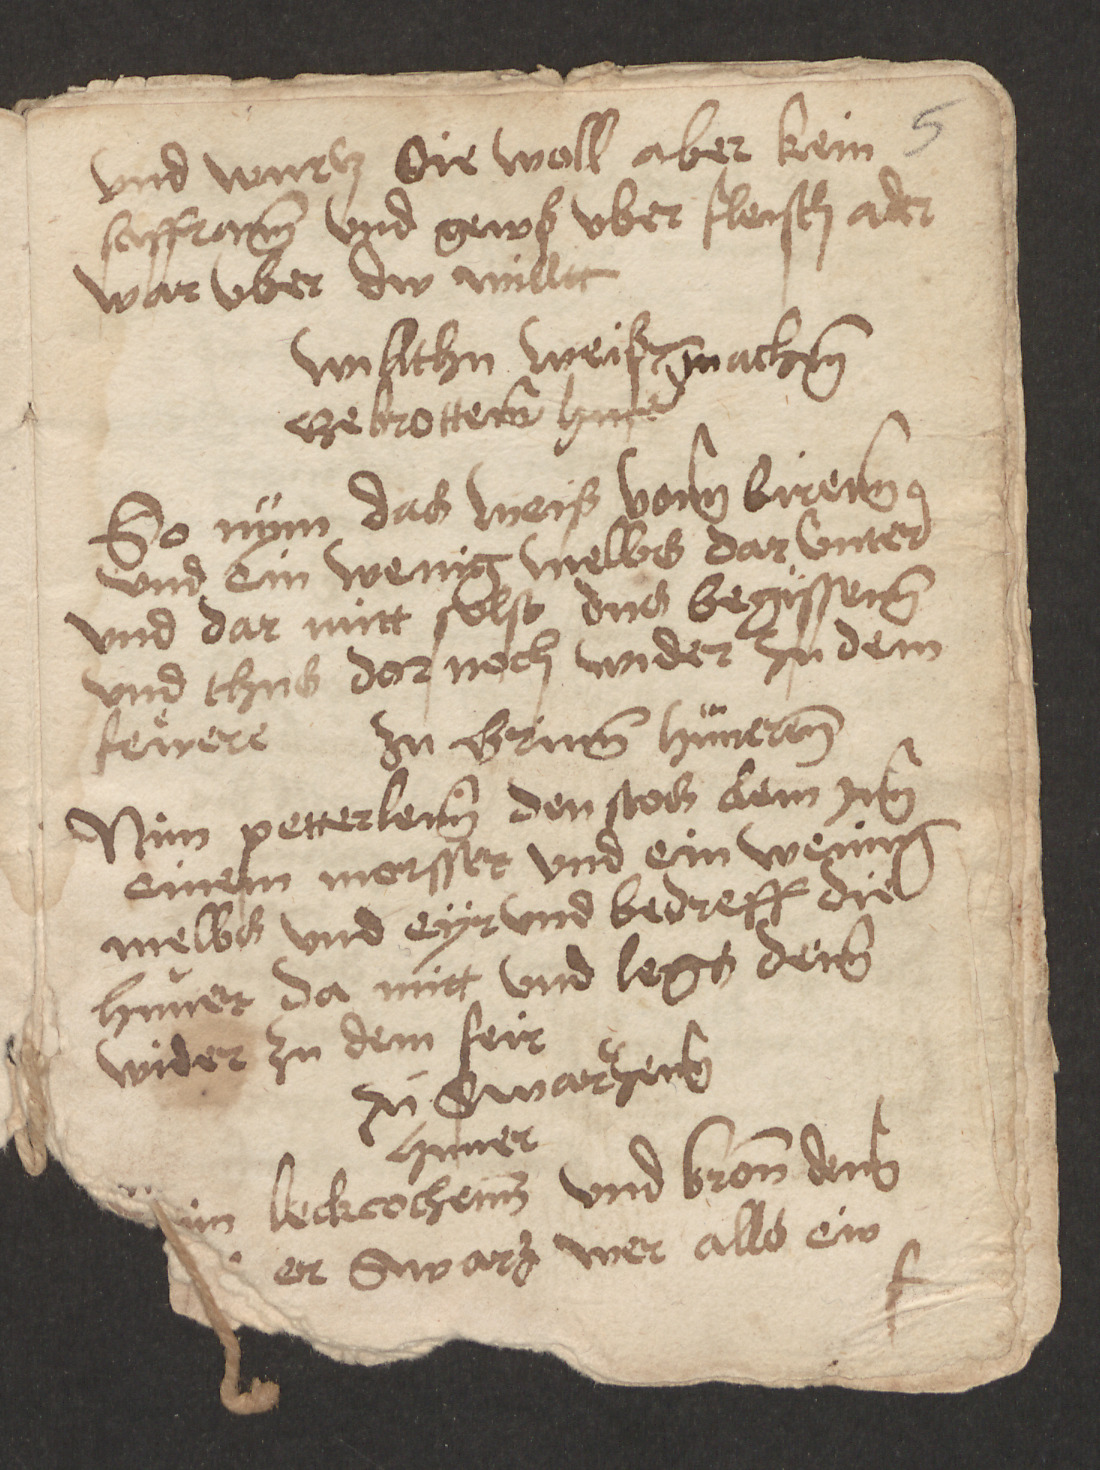 5
vnd wurtz Sie woll aber kein
saffrann vnd gews vber fleisch ader
war vber dw willtt
wilthu weiß machen
Gebrottenn huner
So nÿm das weiß vonn eirenn
vnd Ein wenig melbs dar vnter
vnd dar mitt solst dus begissenn
vnd thus dar noch wider zu dem
fewere zu Grunn hüneren
Nim petterlenn den stos klein Inn
einem morsser vnd ein wening
melbs vnd eÿr vnd bedreff die
huner da mitt vnd legs denn
wider zu dem feir
zu Swartzenn
huner
im leckcochenn vnd bron denn
er Swartz wer als ein